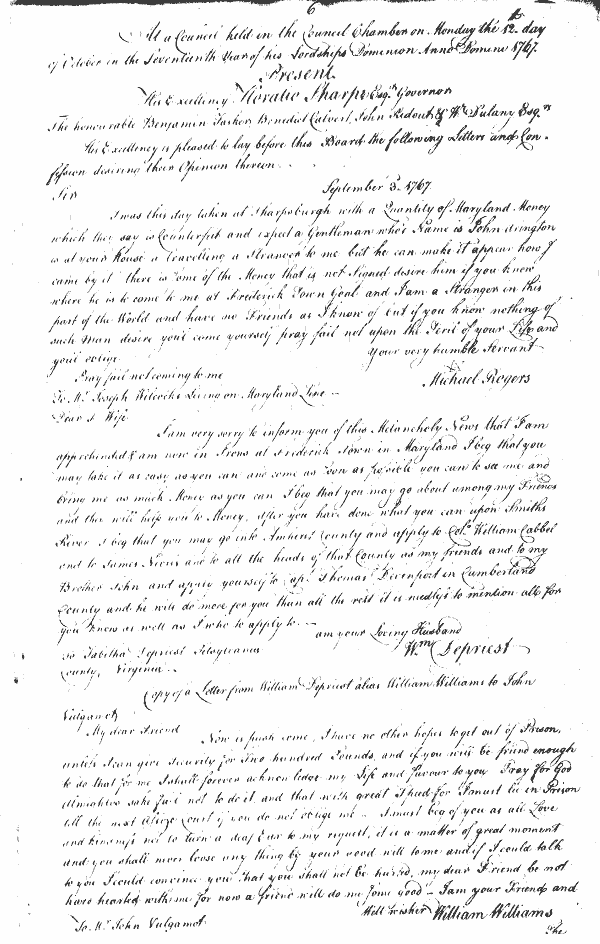 6
At a Council held in the Council Chamber on Monday the 12th day
of October in the Seventeenth Year of his Lordships Dominion Anno Domini 1767.
Present
His Excellency Horatio Sharpe Esqr. Governor
The honourable Benjamin Tasker, Benedict Calvert, John Ridout & Wm. Dulany Esqrs
His Excellency is pleased to lay before this Board the following Letters and Con-
fession desiring their Opinion thereon
Sir
September 3d. 1767.
I was this day taken at Sharpsburgh with a Quantity of Maryland Money
which they say is Counterfeit and expect a Gentleman who's Name is John
is at your house a Travelling a Stranger to me but he can make it appear how I
came by it there is some of the Money that is not Signed desire him if you know
where he is to come to me at Frederick Town Goal and I am a Stranger in this
part of the World and have no Friends as I know of but if you know nothing of
such Man desire you'd come yourself pray fail not upon the Peril of your Life and
you'd oblige
Your very humble Servant
Pray fail not coming to me
Michael Rogers
To Mr. Joseph Wilcocks Living on Maryland Line
Dear & Wife
I am very sorry to inform you of this Melancholy News that I am
apprehended & am now in Irons at Frederick Town in Maryland I beg that you
may take it as easy as you can and come as soon as possible you can to see me and
bring me as much Money as you can I beg that you may go about among my Friends
and they will help you to Money, after you have done what you can upon Smiths
River I beg that you may go into Amherst County and apply to Colo. William Cabbel
and to James and to all the heads of that County as my friends and to my
Brother John and apply yourself to Capt. Thomas Devenport in Cumberland
County and he will do more for you than all the rest it is needless to mention all for
you know as well as I who to apply to
am your Loving Husband
Wm. Depriest
To Tabitha Depriest
County, Virginia
Copy of a Letter from William Depriest alias William Williams to John
Vulgamot
My dear Friend
Now is push come, I have no other hopes to get out of Prison,
untill I can give Security for Two hundred Pounds, and if you will be friend enough
to do that for me I shall forever acknowledge my Life and favour to you Pray for God
Almightys sake fail not to do it, and that with great Speed for I must lie in Prison
till the next Assize Court if you do not oblige me I must beg of you as all Love
and kindness not to turn a deaf Ear to my request, it is a matter of great moment
and you shall never loose any thing by your good will to me and if I could talk
to you I could convince you that you shall not be hurted, my dear Friend be not
hard hearted with me for now a friend will do me some good I am your Friend and
Well wisher William Williams
To Mr. John Vulgamot
The